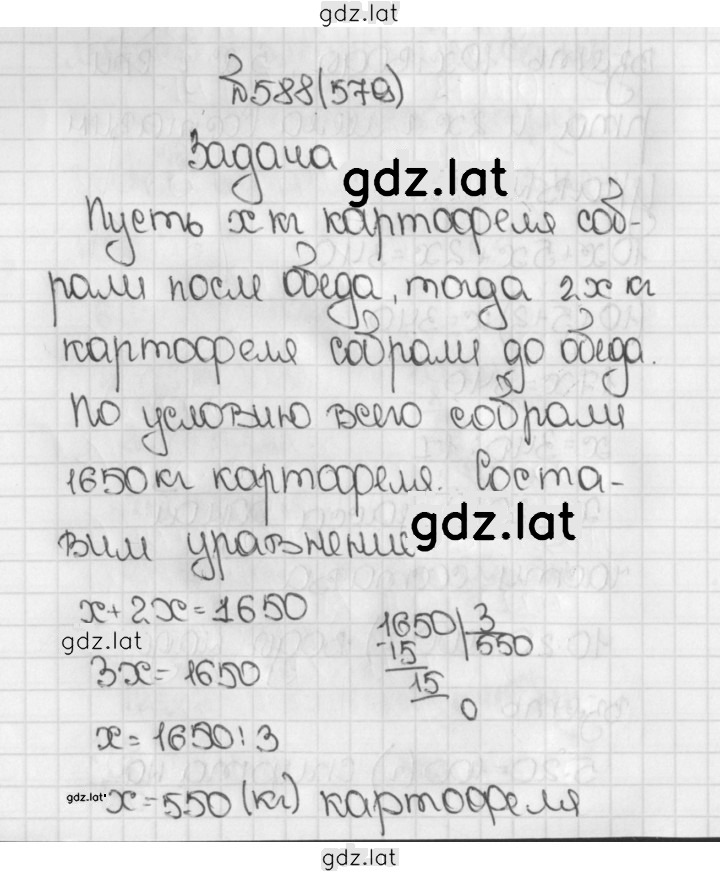 gdz.lat
№588(578)
Задача
gdz.lat
Пусть x кг картофеля соб-
рали после обеда, тогда 2x кг
картофеля собрали до обеда.
По условию всего собрали
1650 кг картофеля. Соста-
вим уравнение
gdz.lat
x+2x=1650
gdz.lat
3x=1650
x=1650:3
1650 3
15 550
15
0
gdz.lat
x=550 (кг) картофеля
gdz.lat